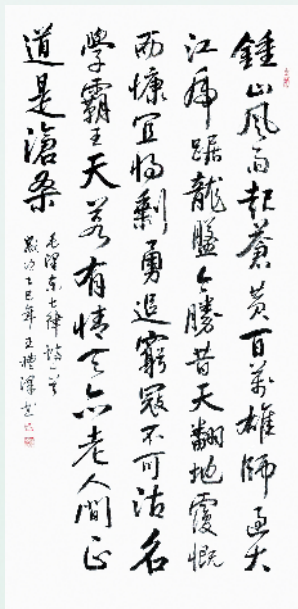 鍾山風雨起蒼黄百萬雄師過大
江虎踞龍盤今勝昔天翻地覆慨
而慷宜將剩勇追窮寇不可沽名
學霸王天若有情天亦老人間正
道是滄桑
毛澤東七律詩一首
歲次乙巳年王禮澤書